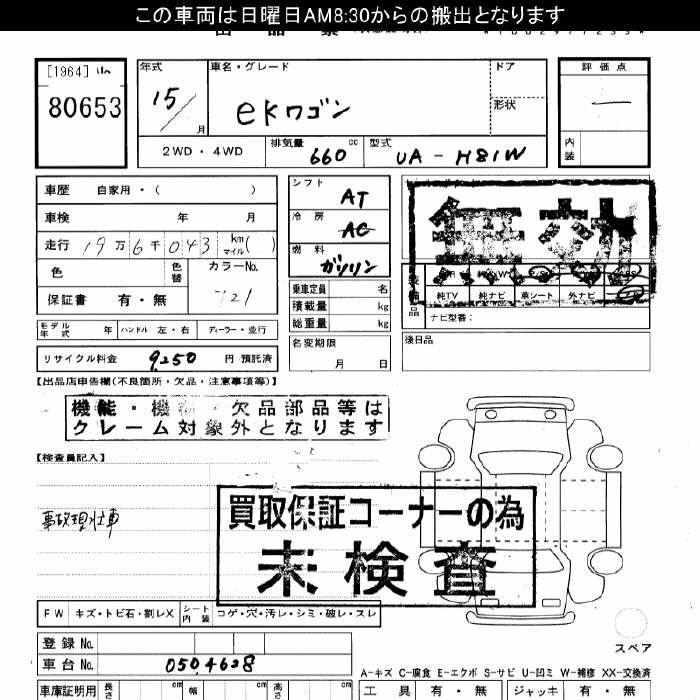 この車両は日曜日AM8:30からの搬出となります
[1964]
80653
年式 車名・グレード ドア 評価点
15/月 eKワゴン 形状 —
2WD・4WD 排気量 660 cc 型式 UA-H81W 内装
車歴 自家用・( )
車検 年 月
走行 19万6千043 km マイル ( )
色 色替 カラーNo.
保証書 有・無
シフト AT
冷房 AC
燃料 ガソリン
乗車定員 名
積載量 kg
総重量 kg
無効
純TV 純ナビ 革シート 外ナビ
ナビ型番:
モデル年式 年 ハンドル 左・右 ディーラー・並行
名変期限
月 日
後日品
リサイクル料金 9,250 円 預託済
【出品店申告欄(不良箇所・欠品・注意事項等)】
機能・機 ・欠品部品等は
クレーム対象外となります
【検査員記入】
事故現状車
買取保証コーナーの為
未検査
FW キズ・トビ石・割レX シート内装 コゲ・穴・汚レ・シミ・破レ・スレ
スペア
登録No.
車台No. 0504628
A-キズ C-腐食 E-エクボ S-サビ U-凹ミ W-補修 XX-交換済
車庫証明用 長さ cm 幅 cm 高さ cm 工具 有・無 ジャッキ 有・無